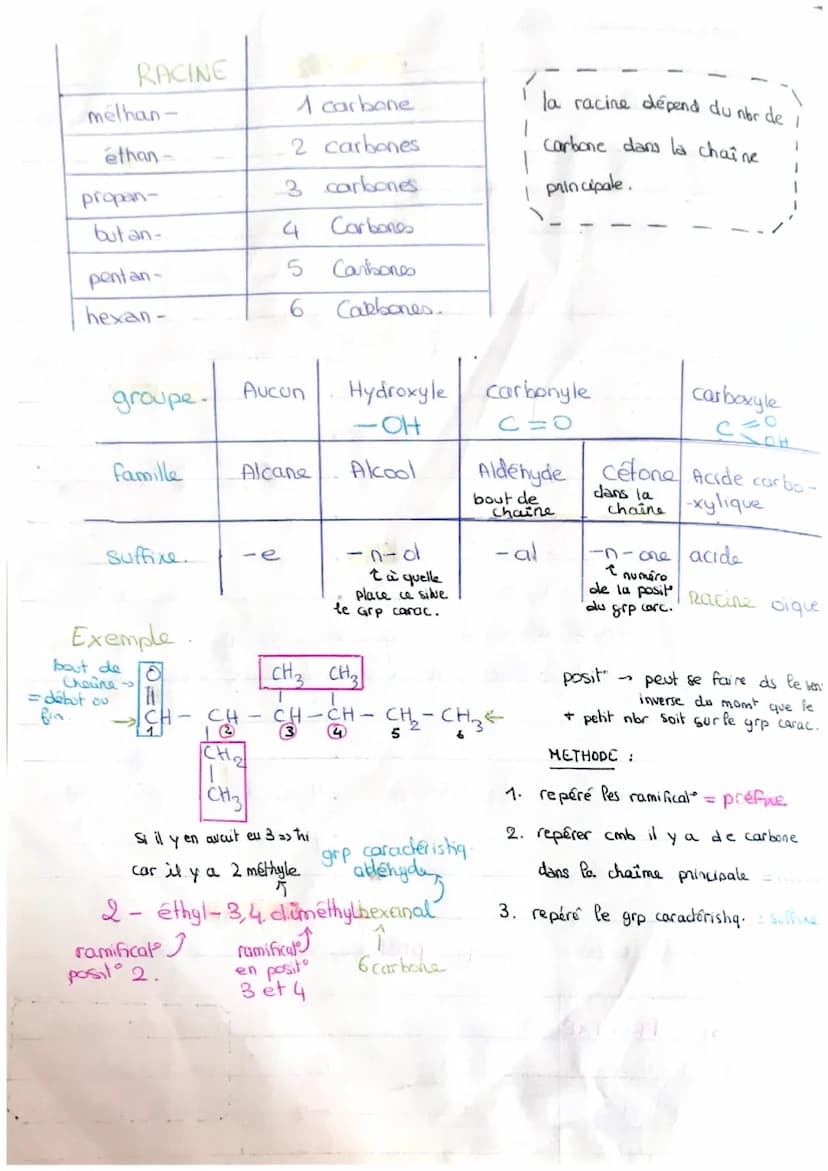 RACINE
méthan- 1 carbone
éthan- 2 carbones
propan- 3 carbones
butan- 4 Carbones
pentan- 5 Carbones
hexan- 6 Carbones.
la racine dépend du nbr de
carbone dans la chaîne
principale.
groupe. Aucun Hydroxyle carbonyle carboxyle
-OH C=O C=O OH
famille Alcane Alcool Aldéhyde cétone Acide carbo-
bout de chaîne dans la chaîne -xylique
suffixe. -e -n-ol -al -n-one acide
↑ à quelle place ce situe le grp carac.
↑ numéro de la posit° du grp carc.
Racine oïque
Exemple.
bout de
chaîne →
= début ou
fin.
O
||
CH - CH - CH - CH - CH2 - CH3
CH3 CH3
1 2 3 4 5 6
CH2
|
CH3
posit° → peut se faire ds le sens
inverse du momt que le
+ petit nbr soit sur le grp carac.
METHODE :
1. repéré les ramificat° = préfixe
2. repérer cmb il y a de carbone
dans la chaîme principale =
3. repéré le grp caractéristiq. = suffixe
Si il y en avait eu 3 => tri
car il y a 2 méthyle
grp caractéristiq.
aldéhyde
2 - éthyl-3,4. diméthylhexanal
ramificat°
posit° 2.
ramificat°
en posit°
3 et 4
6 carbone